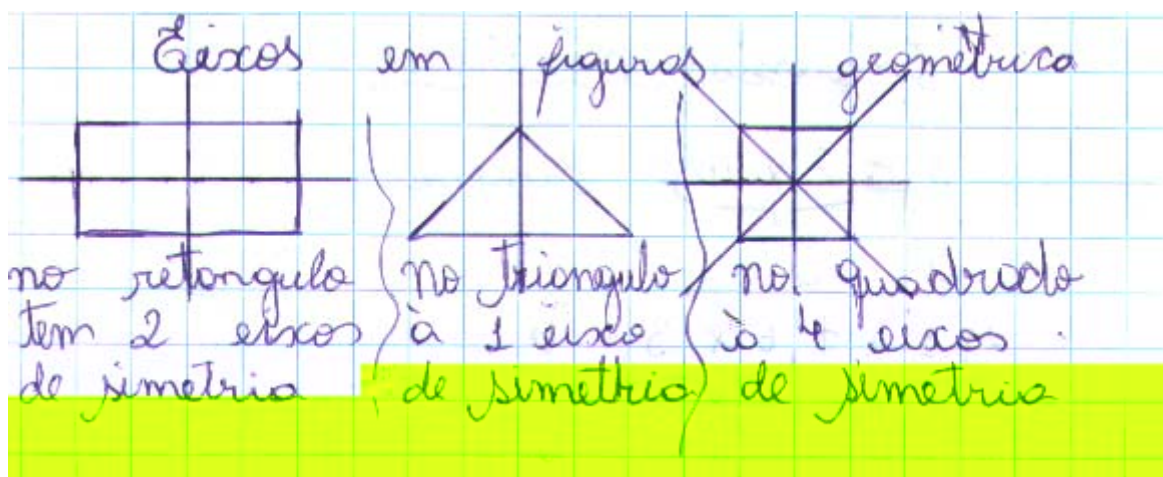 Eixos em figuras geométrica
no retangulo
tem 2 eixos
de simetria
no triangulo
à 1 eixo
de simetria
no quadrado
à 4 eixos
de simetria